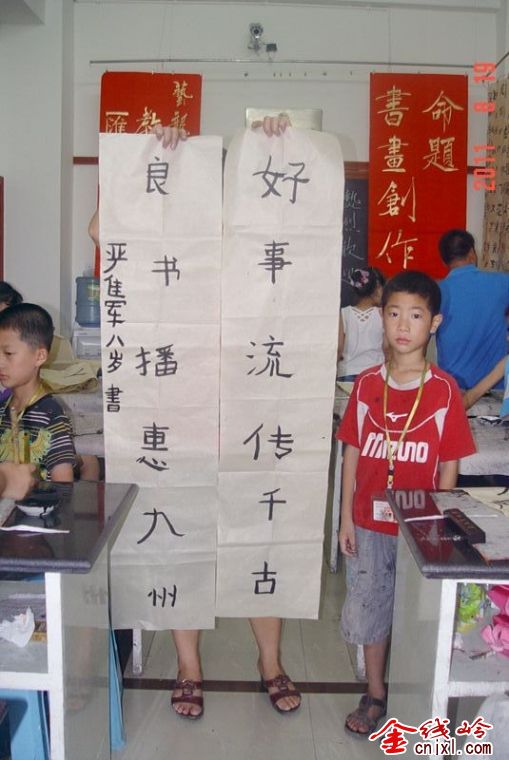 命題
書畫創作
教
匯
好事流传千古
良书播惠九州
严隹军八岁 书
MIZUNO
2011 8 19
金线岭
cnjxl.com